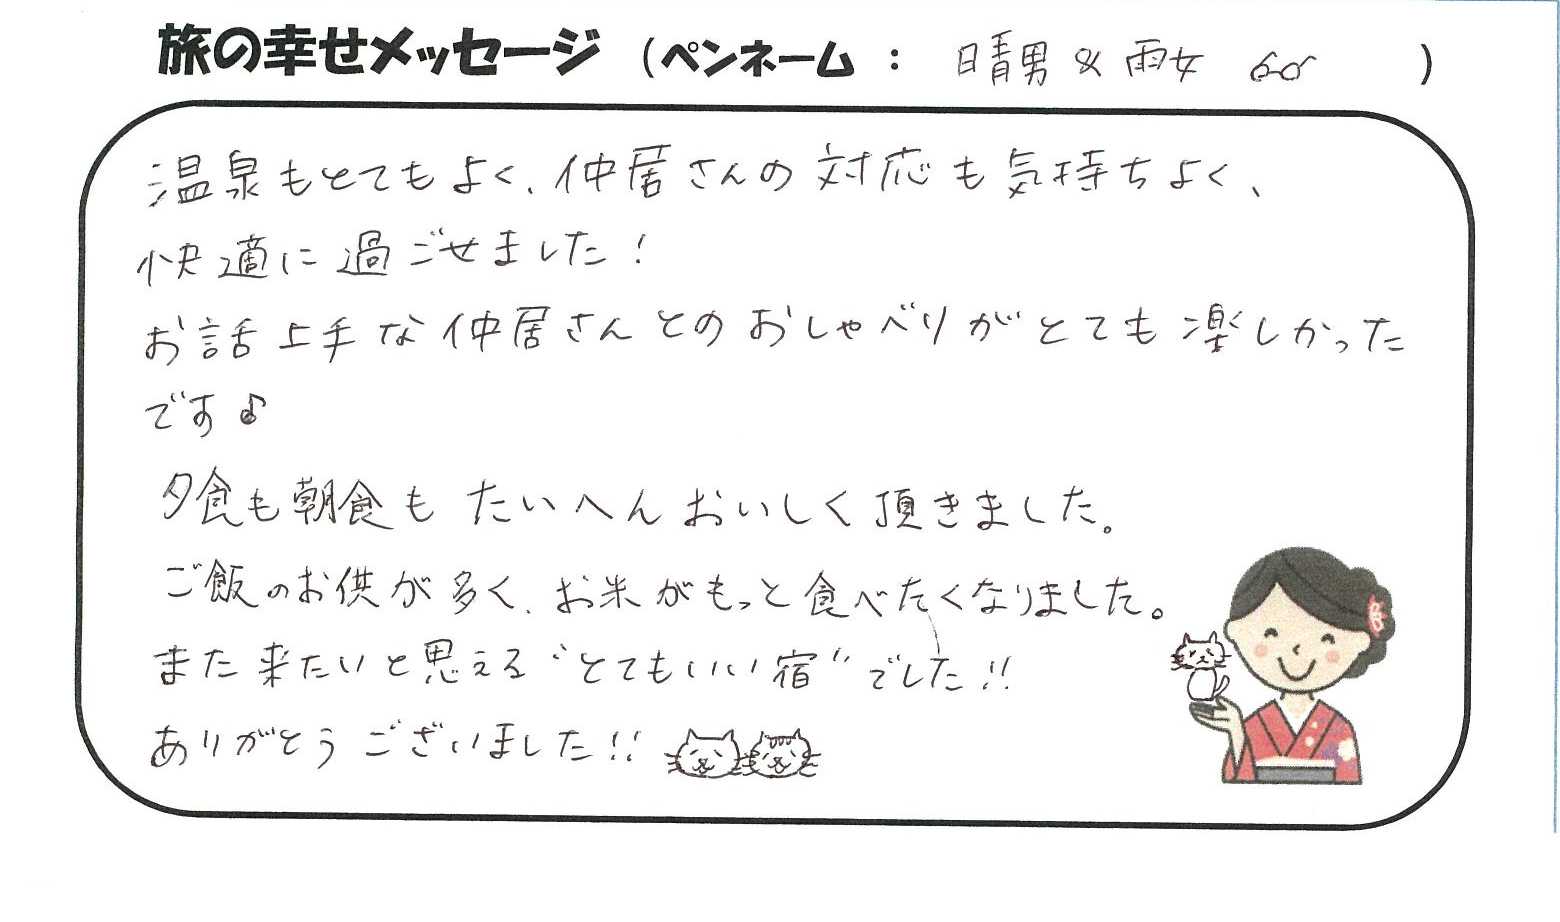 旅の幸せメッセージ (ペンネーム : 晴男 & 雨女 )
温泉もとてもよく、仲居さんの対応も気持ちよく、
快適に過ごせました!
お話上手な仲居さんとのおしゃべりがとても楽しかった
です♪
夕食も朝食も たいへんおいしく頂きました。
ご飯のお供が多く、お米がもっと食べたくなりました。
また来たいと思える“とてもいい宿”でした!!
ありがとうございました!!